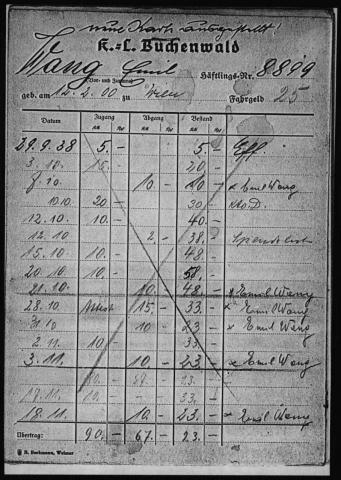 neue Karte ausgestellt!
K.-L. Buchenwald
Wang Emil Häftlings-Nr. 8899
Vor- und Zuname
geb. am 12.2.00 zu Wien Fahrgeld 25
Datum Zugang Abgang Bestand
RM Rpf RM Rpf RM Rpf
29.9.38 5.- 5.- Eff.
3.10. 15.- 20.-
10.- 10.- x Emil Wang
10.10. 20.- 30.-
12.10. 10.- 40.-
12.10 2.- 38.-
15.10. 10.- 48.-
20.10. 10.- 58.-
21.10. 10.- 48.- x Emil Wang
28.10. 15.- 33.- x Emil Wang
31.10 10.- 23.- x Emil Wang
2.11. 10.- 33.-
3.11. 10.- 23.- x Emil Wang
23.-
18.11. 10.- 23.- x Emil Wang
Übertrag: 90.- 67.- 23.-
R. Borkmann, Weimar